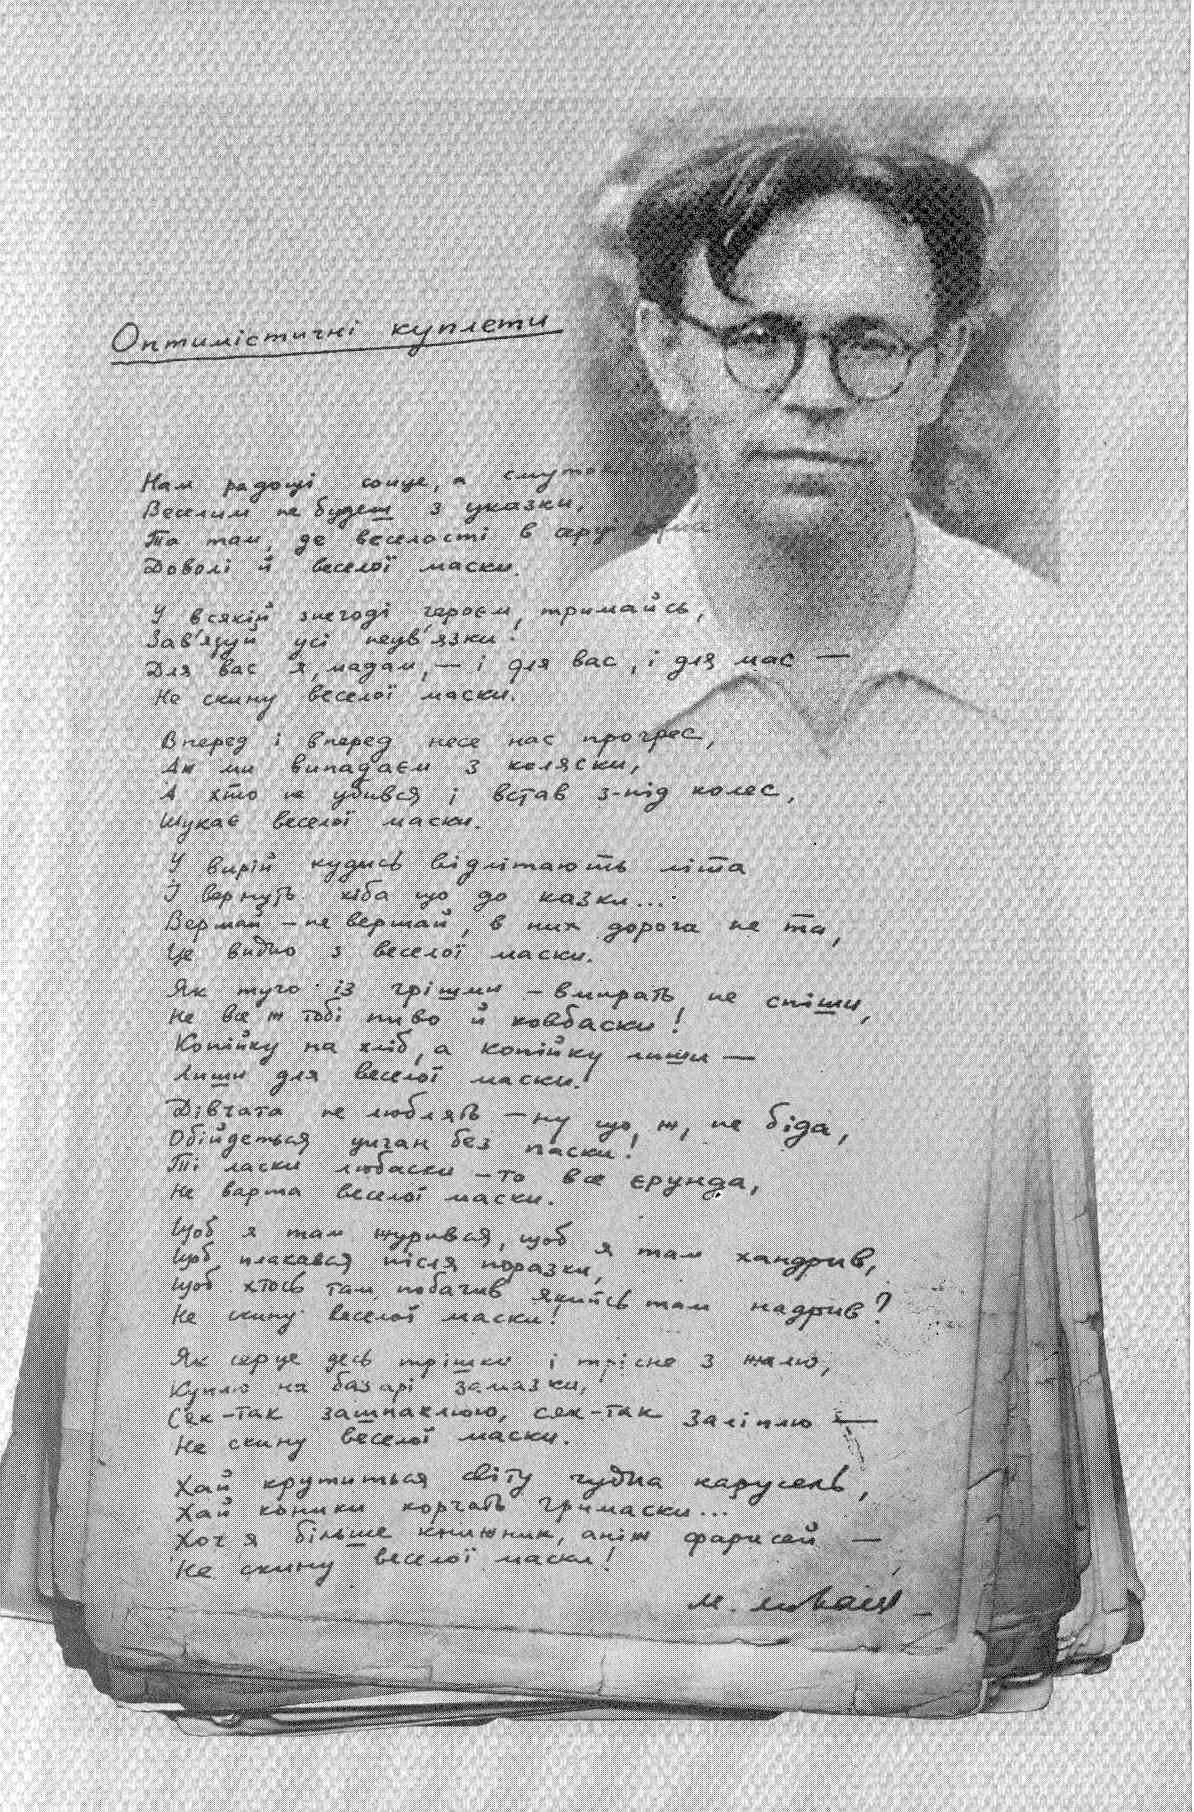 Оптимістичні куплети
Нам радощі сонце, а смуток
Веселим не будеш з указки,
Та там, де веселості в серці
Доволі й веселої маски.
У всякій знегоді героєм тримайсь,
Зав'язуй усі неув'язки!
Для вас я, мадам, — і для вас, і для мас —
Не скину веселої маски.
Вперед і вперед несе нас прогрес,
Аж ми випадаєм з коляски,
А хто не убився і встав з-під колес,
Шукає веселої маски.
У вирій кудись відлітають літа
І вернуть хіба що до казки...
Вертай – не вертай, в них дорога не та,
Це видно з веселої маски.
Як туго із грішми – вмирать не спіши,
Не все ж тобі пиво й ковбаски!
Копійку на хліб, а копійку лиши —
Лиши для веселої маски.
Дівчата не люблять – ну що ж, не біда,
Обійдеться циган без паски!
Ті ласки любаски – то все єрунда,
Не варта веселої маски.
Щоб я там журився, щоб я там хандрив,
Щоб плакався після поразки,
Щоб хтось там побачив якийсь там надрив?
Не скину веселої маски!
Як серце десь трішки і трісне з жалю,
Куплю на базарі замазки,
Сяк-так зашпаклюю, сяк-так заліплю —
Не скину веселої маски.
Хай крутиться світу чудна карусель,
Хай коники корчать гримаски...
Хоч я більше книжник, аніж фарисей —
Не скину веселої маски!
М. Лукаш